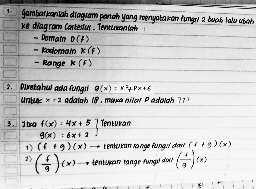 1. Gambarkanlah diagram panah yang menyatakan fungsi 2 buah lalu ubah
ke diagram Cartesius. Tentukanlah :
- Domain D(f)
- Kodomain K(f)
- Range R(f)
2. Diketahui ada fungsi g(x) = x²+Px+6
Untuk x = 2 adalah 18, maka nilai P adalah ???
3. Jika f(x) : 4x + 5 } Tentukan
g(x) : 6x + 2
1) (f + g)(x) → tentukan range fungsi dari (f + g)(x)
2) (f/g)(x) → tentukan range fungsi dari (f/g)(x)